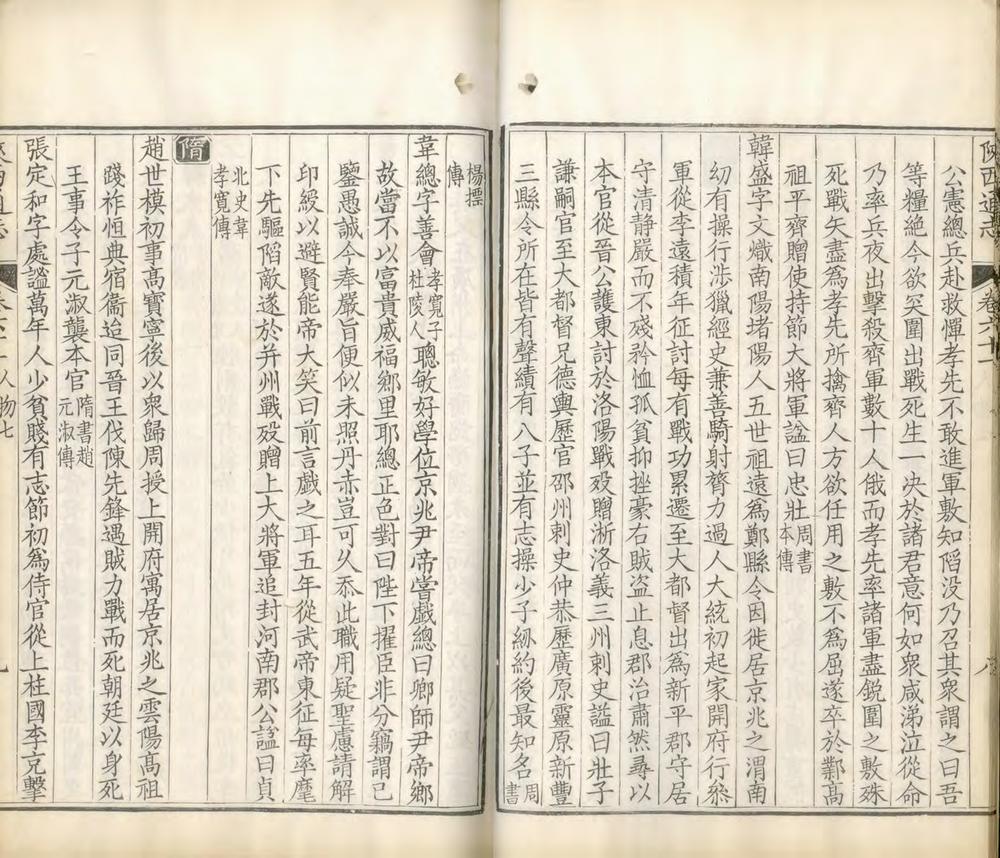 陝西通志 卷六十一
公憲總兵赴救憚孝先不敢進軍敷知䧟没乃召其衆謂之曰吾
等糧絶今欲突圍出戰死生一决於諸君意何如衆咸涕泣從命
乃率兵夜出擊殺齊軍數十人俄而孝先率諸軍盡鋭圍之敷殊
死戰矢盡爲孝先所擒齊人方欲任用之敷不爲屈遂卒於鄴高
祖平齊贈使持節大將軍諡曰忠壯周書本傳
韓盛字文熾南陽堵陽人五世祖遠爲鄭縣令因徙居京兆之渭南
幼有操行涉獵經史兼善騎射膂力過人大統初起家開府行叅
軍從李遠積年征討每有戰功累遷至大都督出爲新平郡守居
守清静嚴而不殘矜恤孤貧抑挫豪右賊盗止息郡治肅然尋以
本官從晉公護東討於洛陽戰殁贈淅洛義三州刺史謚曰壯子
謙嗣官至大都督兄德輿歷官邵州刺史仲恭歷廣原靈原新豐
三縣令所在皆有聲績有八子並有志操少子紛約後最知名周書
楊摽傳
韋總字善會孝寛子杜陵人聰敏好學位京兆尹帝嘗戲總曰卿師尹帝鄉
故當不以富貴威福鄉里耶總正色對曰陛下擢臣非分竊謂已
鑒愚誠今奉嚴旨便似未照丹赤豈可乆忝此職用疑聖慮請解
印綬以避賢能帝大笑曰前言戲之耳五年從武帝東征每率麾
下先驅䧟敵遂於并州戰殁贈上大將軍追封河南郡公諡曰貞
北史韋孝寛傳
隋
趙世模初事高寶寧後以衆歸周授上開府寓居京兆之雲陽高祖
踐祚恒典宿衞迨同晉王伐陳先鋒遇賊力戰而死朝廷以身死
王事令子元淑襲本官隋書趙元淑傳
張定和字處謐萬年人少貧賤有志節初爲侍官從上柱國李充擊
人物七